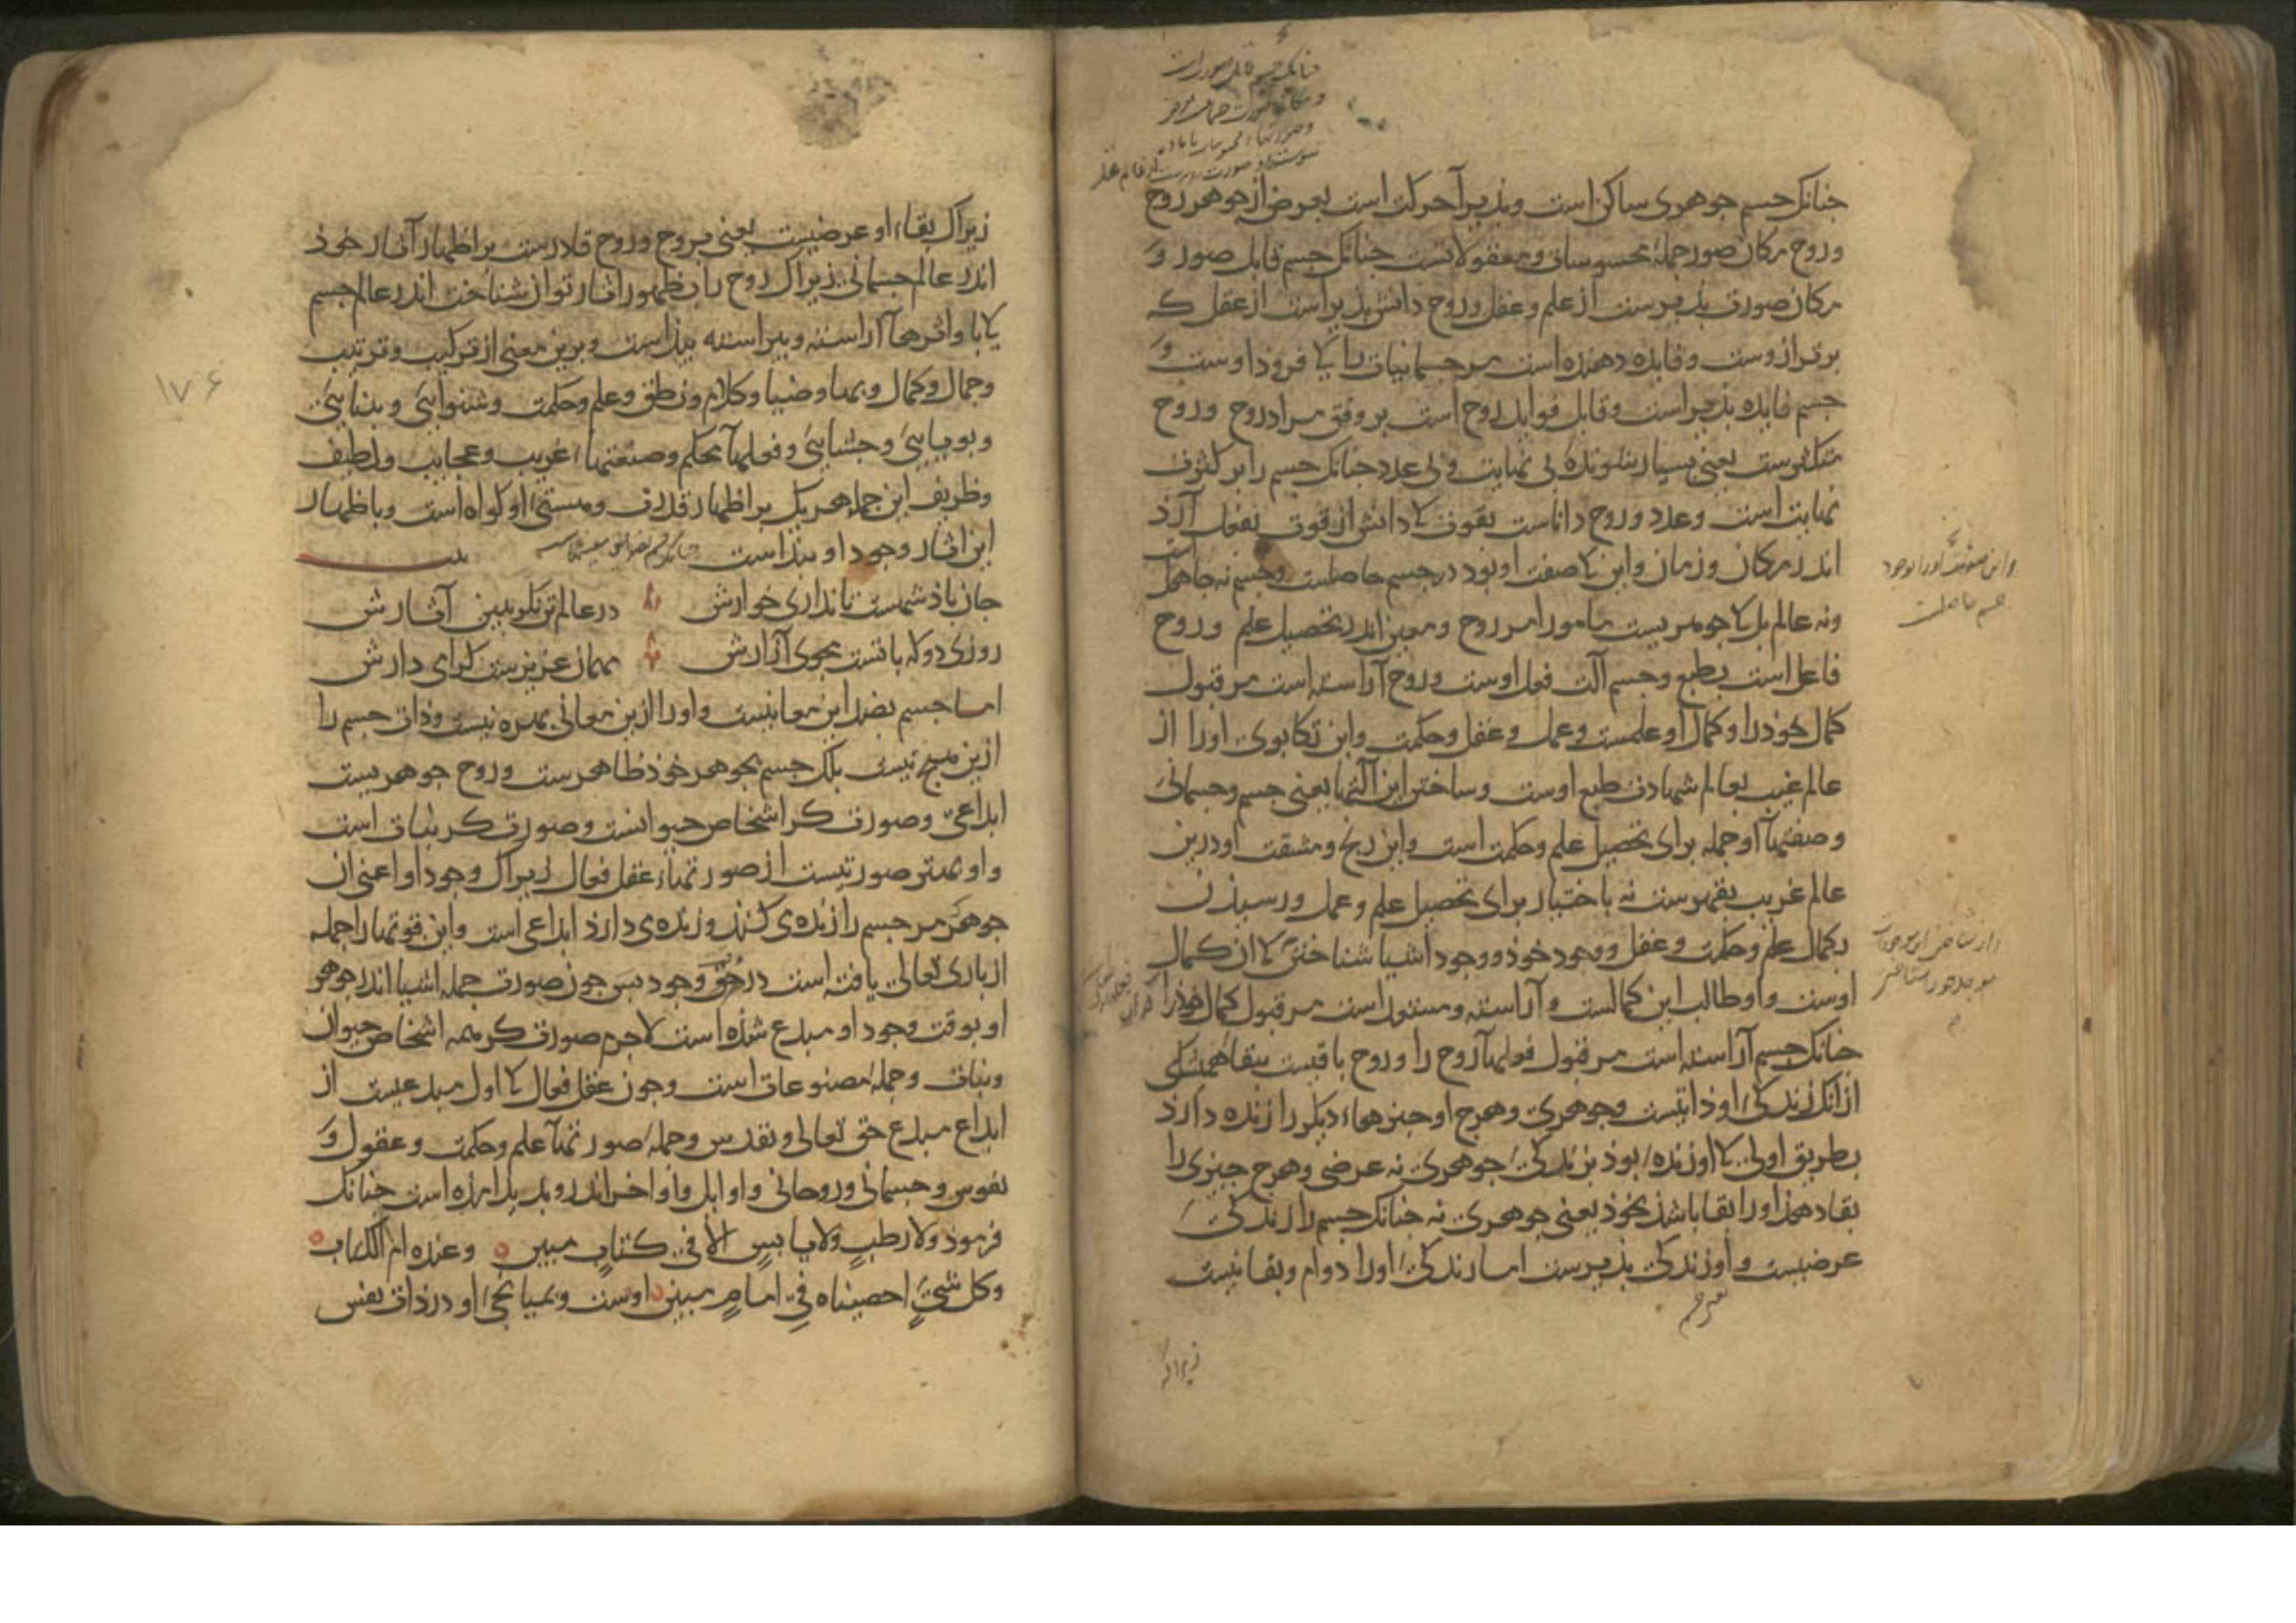 جنانک جسم جوهری ساکن است وبذیرا حرکت است بعرض از جوهر روح
وروح مکان صور جملهٔ محسوسات ومعقولاتست جنانک جسم قابل صور و
مکان صورت بذیرست از علم وعقل وروح دانش بذیر است از عقل که
برتر ازوست وفایده دهنده است مر جسمانیات را کا فروذ اوست و
جسم فایده بذیر است وقابل فواید روح است بر وفق مراد روح وروح
متکثرست یعنی بسیار شونده بی نهایت وبی عدد جنانک جسم را بر کثرت
نهایت است وعدد وروح داناست بقوت کا دانش از قوت بفعل آرذ
اندر مکان وزمان واین کا صفت او بوذ در جسم حاصلست وجسم نه جاهل است
ونه عالم بل کا جوهریست مامور امر روح ومعین اندر تحصیل علم وروح
فاعل است بطبع وجسم آلت فعل اوست وروح آراسته است مر قبول
کمال خوذ را وکمال او علمست وعمل وعقل وحکمت واین تکابوی اورا از
عالم غیب بعالم شهادت طبع اوست وساختن این آلتها یعنی جسم وجسمانی
وصفتهآ او جمله برای تحصیل علم وحکمت است واین رنج ومشقت او درین
عالم غریب بقهرست نه باختیار برای تحصیل علم وعمل ورسیذن
بکمال علم وحکمت وعقل ووجود خوذ ووجود اشیا شناختن کا ان کمال
اوست واو طالب این کمالست وآراسته ومستور است مر قبول کمال خوذ را
جنانک جسم آراسته است مر قبول فعلهآ روح را وروح باقیست ببقا همیشکی
ازانک زندکی او ذاتیست وجوهری وهرج او جیزهاء دیکر را زنده دارذ
بطریق اولی کا او زنده بوذ بزندکی جوهری نه عرضی وهرج جیزی را
بقا دهذ اورا بقا باشذ بخوذ یعنی جوهری نه جنانک جسم را زندکی
عرضیست واو زندکی بذیرست اما زندکی اورا دوام وبقا نیست
زیراک
واین صفت اورا بوجود
جسم حاصلست
زیراک بقاء او عرضیست یعنی بروح وروح قادرست بر اظهار آثار خوذ
اندر عالم جسمانی زیراک روح را بظهور آثار توان شناخت اندر عالم جسم
کا با واثرهآ آراسته وبیراسته بیذاست وبرین معنی از ترکیب وترتیب
وجمال وکمال وبها وضیا وکلام ونطق وعلم وحکمت وشنوایی وبینایی
وبویایی وجشایی وفعلهآ محکم وصنعتهاء غریب وعجایب ولطیف
وظریف این جمله هر یک بر اظهار قدرت وهستی او کواه است وباظهار
این آثار وجود او بیذاست
بیت
جان باذشهست تا نداری خوارش در عالم تن نکو ببین آثارش
روزی دو که با تست مجوی آزارش مهمان عزیزست کرامی دارش
اما جسم بضد این معانیست واورا ازین معانی بهره نیست وذات جسم را
ازین هیج نیست بلک جسم بجوهر خوذ ظاهرست وروح جوهریست
ابداعی وصورت کر اشخاص حیوانست وصورت کر نبات است
واو بهتر صورتیست از صورتهاء عقل فعال زیراک وجود او اعنی ان
جوهر مر جسم را زنده می کنذ وزنده می دارذ ابداعی است واین قوتها را جمله
از باری تعالی یافته است در حق وجود بس جون صورت جمله اشیا اندر جوهر
او بوقت وجود او مبدع شذه است لاجرم صورت کر همه اشخاص حیوان
ونبات وجملهٔ مصنوعات است وجون عقل فعال کا اول مبدعیست از
ابداع مبدع حق تعالی وتقدس وجملهٔ صورتهآ علم وحکمت وعقول و
نفوس وجسمانی وروحانی واوایل واواخر اندرو بدید امذه است جنانک
فرموذ ولا رطبٍ ولا یابسٍ الا فی کتابٍ مبین وعنده ام الکتاب
وکل شیءٍ احصیناه فی امامٍ مبین اوست وبمیانجی او در ذات نفس
۱۷۶